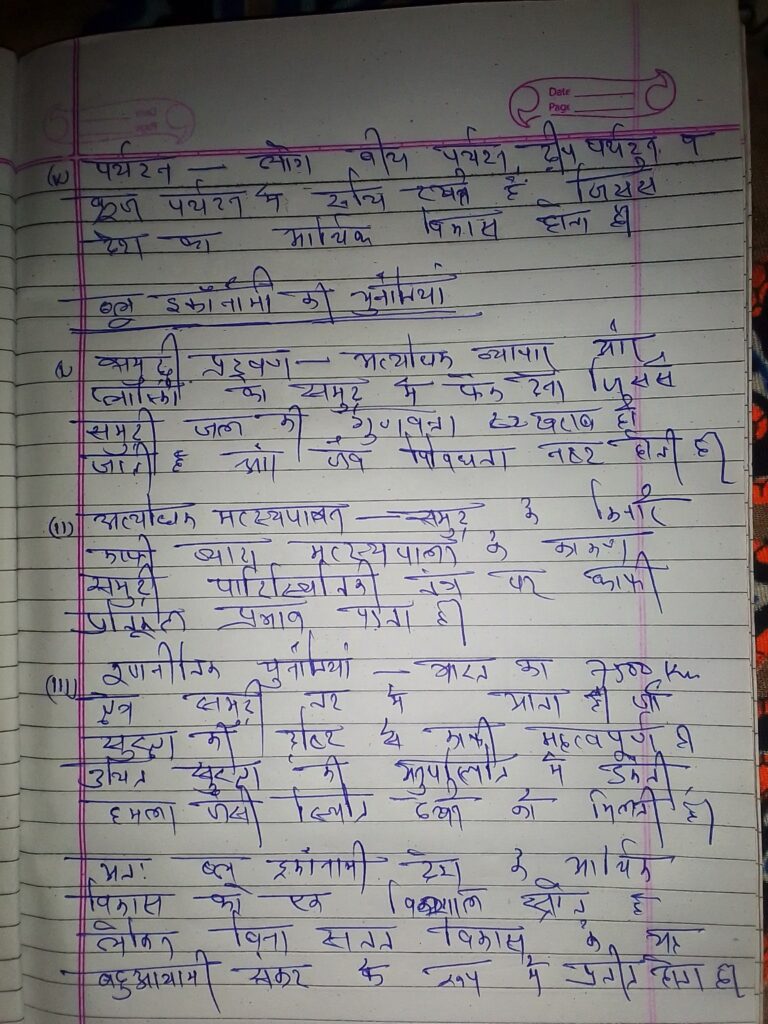 Date
Page
(iv) पर्यटन — लोग तीय पर्यटन, द्वीप पर्यटन व
क्रूज पर्यटन में रूचि रखते हैं जिससे
देश का आर्थिक विकास होता है।
ब्लू इकॉनॉमी की चुनौतियां
समुद्री प्रदूषण — अत्यधिक व्यापार और
प्लास्टिक को समुद्र में फेंक देना जिससे
समुद्री जल की गुणवत्ता खराब हो
जाती है और जैव विविधता नष्ट होती है।
(ii) अत्यधिक मत्स्यपालन — समुद्र के किनारे
काफी ज्यादा मत्स्यपालन के कारण
समुद्री पारिस्थितिकी तंत्र पर काफी
प्रतिकूल प्रभाव पड़ता है।
(iii) रणनीतिक चुनौतियां — भारत का 7500 Km
क्षेत्र समुद्री तट में आता है जो
सुरक्षा की दृष्टि से काफी महत्वपूर्ण है।
उचित सुरक्षा की अनुपस्थिति में डकैती,
हमला जैसी स्थिति देखने को मिलती है।
अतः ब्लू इकॉनामी देश के आर्थिक
विकास का एक स्त्रोत है
लेकिन बिना सतत विकास के यह
बहुआयामी संकट के रूप में प्रतीत होता है।